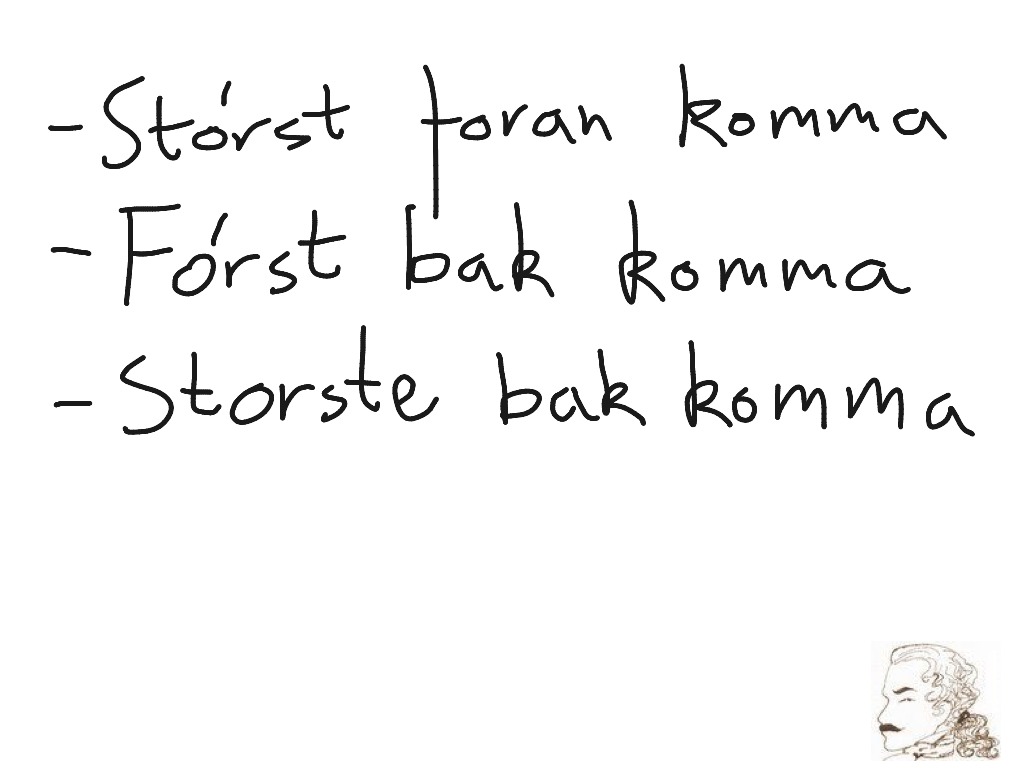 - Stórst foran komma
- Fórst bak komma
- Storste bak komma